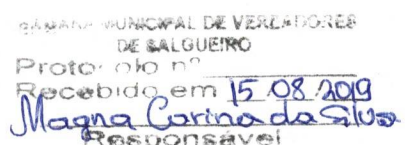 CÂMARA MUNICIPAL DE VEREADORES
DE SALGUEIRO
Protocolo nº
Recebido em 15 08 2019
Magna Carina da Silva
Responsável